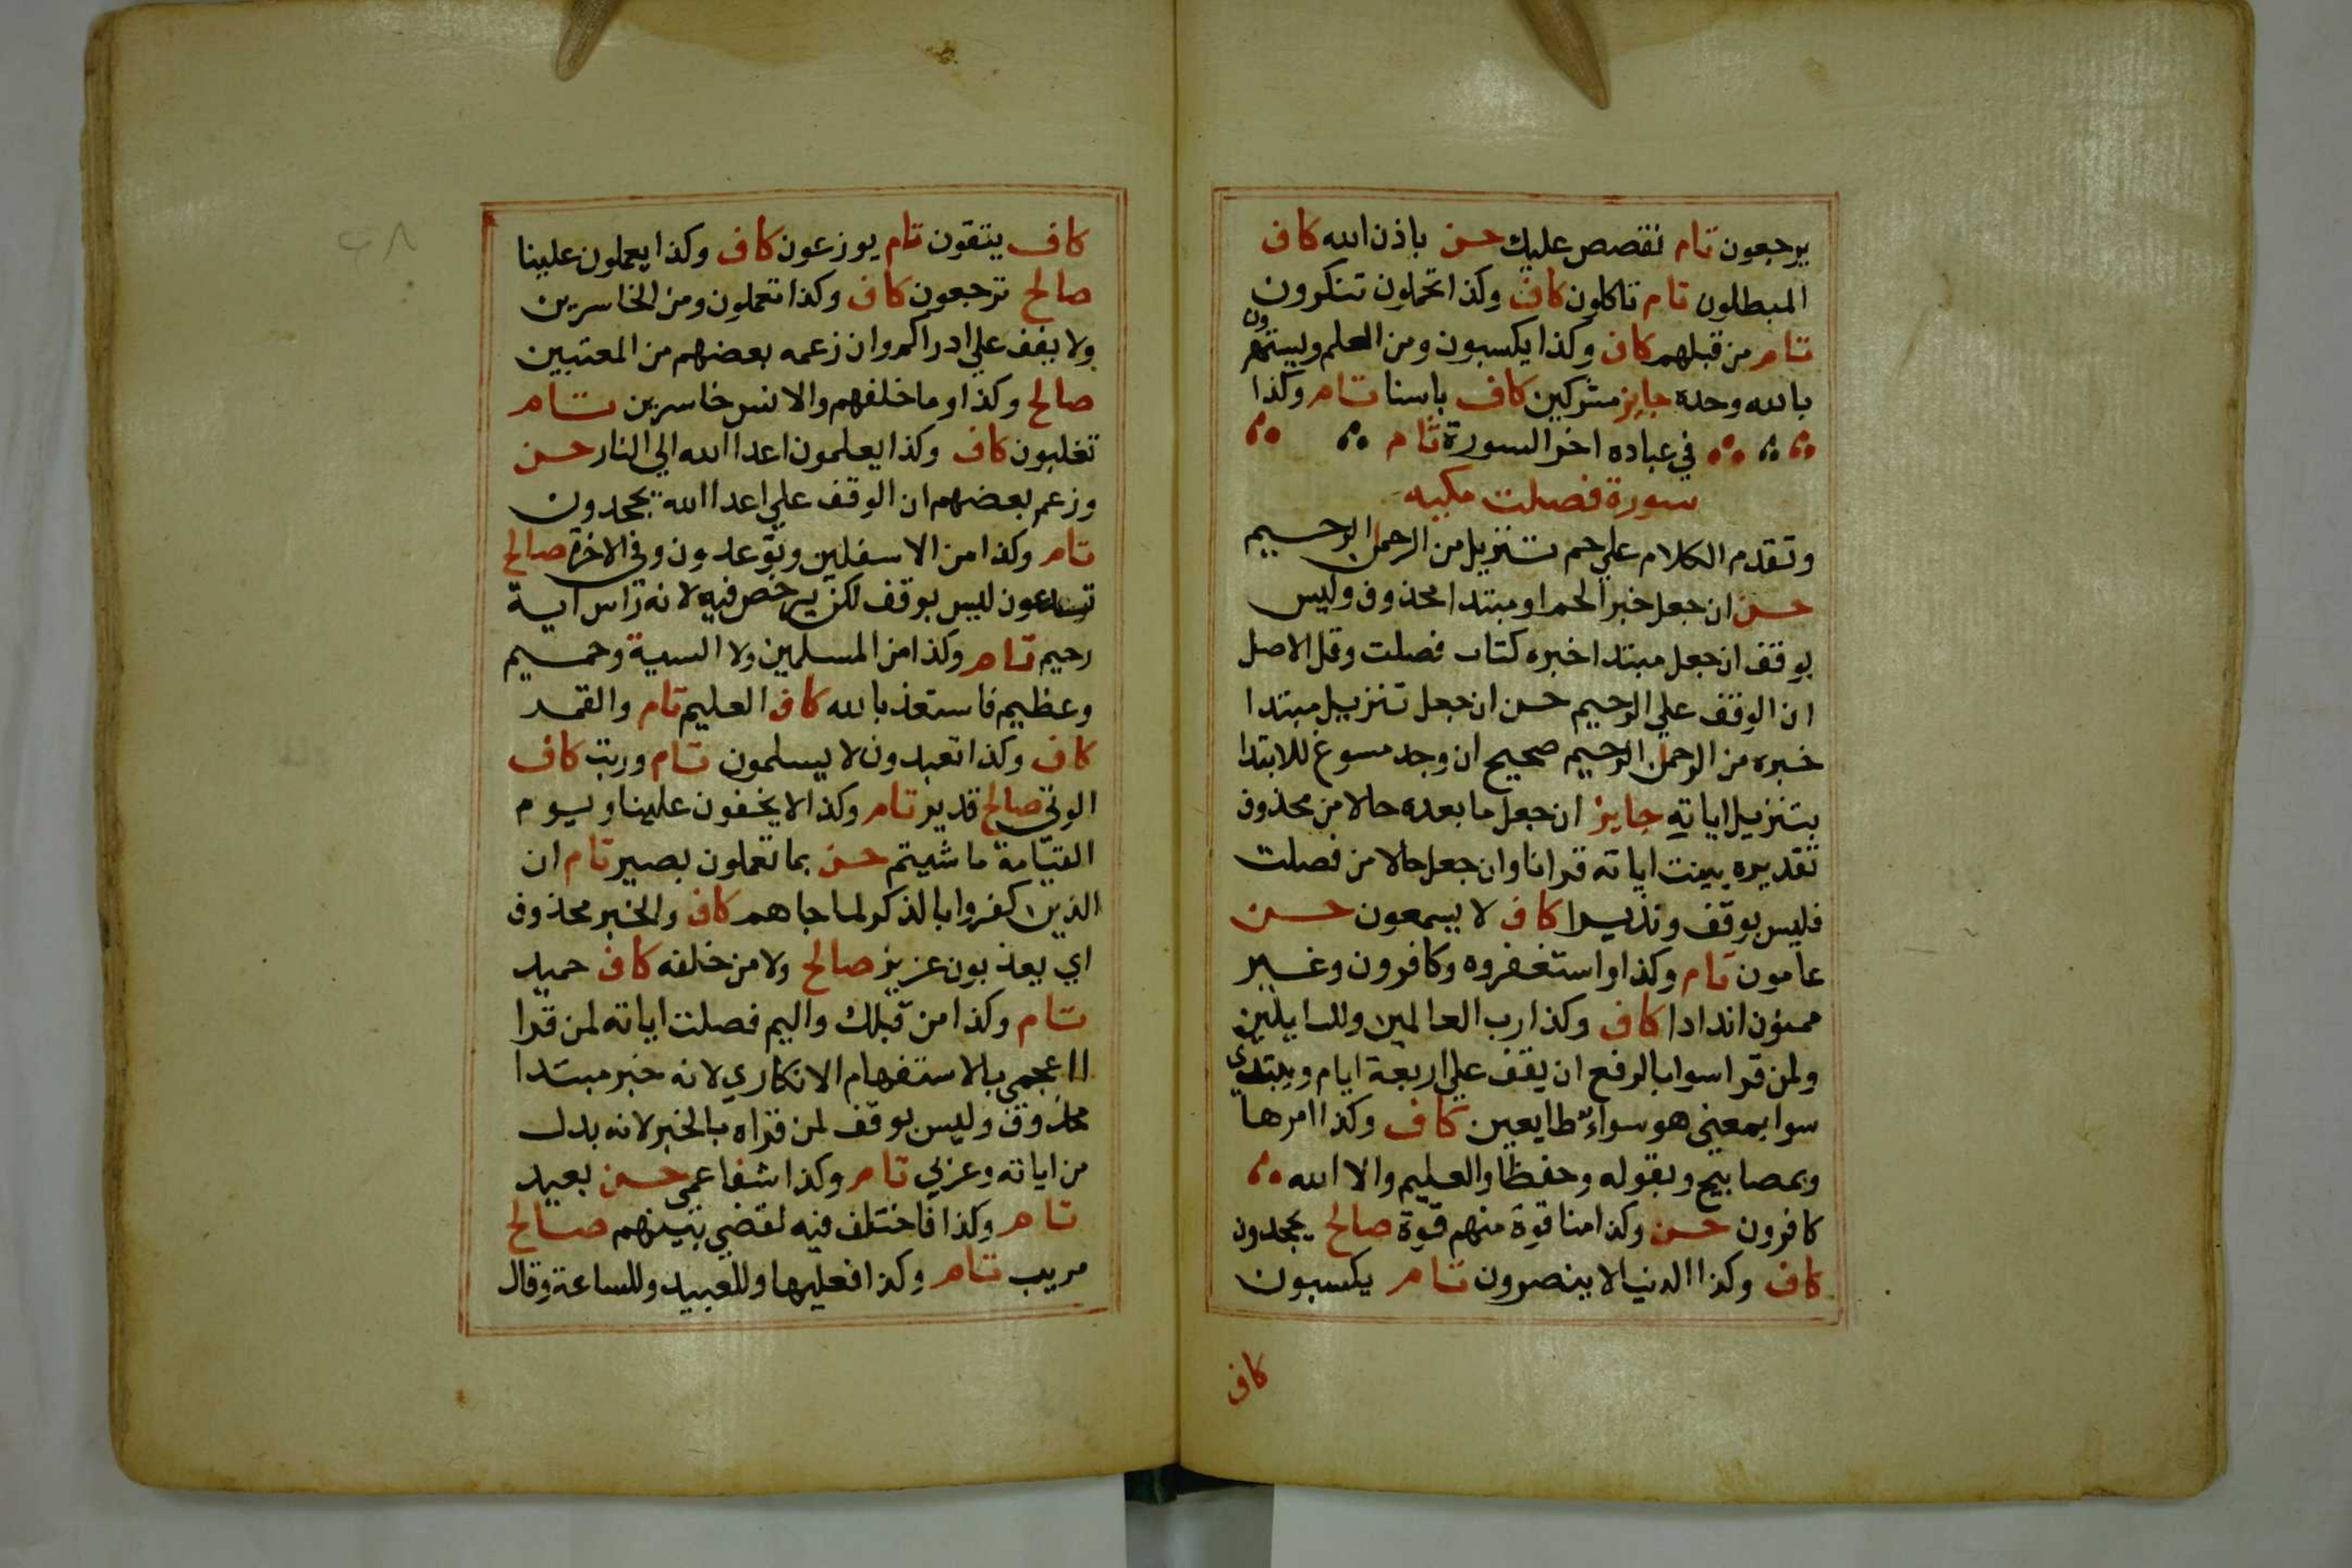 يرجعون تام نقصص عليك حسن باذن الله كاف
المبطلون تام تاكلون كاف وكذا تحملون تنكرون
تام من قبلهم كاف وكذا يكسبون ومن العلم ويستهزون
بالله وحده جايز مشركين كاف باسنا تام وكذا
في عباده اخر السورة تام
سورة فصلت مكيه
وتقدم الكلام علي حم تنزيل من الرحمن الرحيم
حسن ان جعل خبرا لحم او مبتدا محذوف وليس
بوقف ان جعل مبتدا خبره كتاب فصلت وقل الاصل
ان الوقف علي الرحيم حسن ان جعل تنزيل مبتدا
خبره من الرحمن الرحيم صحيح ان وجد مسوغ للابتدا
بتنزيل اياته جايز ان جعل ما بعده حالا من محذوف
تقديره بينت اياته قرانا وان جعل حالا من فصلت
فليس بوقف ونذيرا كاف لا يسمعون حسن
عاملون تام وكذا واستغفروه وكافرون وغير
ممنون اندادا كاف وكذا رب العالمين وللسايلين
ولمن قرا سوا بالرفع ان يقف علي اربعة ايام ويبتدي
سوا بمعني هو سواء طايعين كاف وكذا امرها
وبمصابيح وبقوله وحفظا والعليم والا الله
كافرون حسن وكذا منا قوة منهم قوة صالح يجحدون
كاف وكذا الدنيا لا ينصرون تام يكسبون
كاف
كاف يتقون تام يوزعون كاف وكذا يعملون علينا
صالح ترجعون كاف وكذا تعملون ومن الخاسرين
ولا يقف علي ادراكم وان زعمه بعضهم من المعتبين
صالح وكذا وما خلفهم والانس خاسرين تام
تغلبون كاف وكذا يعلمون اعدا الله الي النار حسن
وزعم بعضهم ان الوقف علي اعدا الله يجحدون
تام وكذا من الاسفلين وتوعدون وفي الاخرة صالح
تدعون ليس بوقف لكن يرخص فيه لانه راس اية
رحيم تام وكذا من المسلمين ولا السية وحميم
وعظيم فاستعذ بالله كاف العليم تام والقمر
كاف وكذا تعبدون لا يسلمون تام وربت كاف
الموتي صالح قدير تام وكذا لا يخفون علينا ويوم
القيامة ما شيتم حسن بما تعملون بصير تام ان
الذين كفروا بالذكر لما جاهم كاف والخبر محذوف
اي يعذبون عزيز صالح ولا من خلفه كاف حميد
تام وكذا من قبلك واليم فصلت اياته لمن قرا
ااعجمي بالاستفهام الانكاري لانه خبر مبتدا
محذوف وليس بوقف لمن قراه بالخبر لانه بدل
من اياته وعربي تام وكذا شفا عمي حسن بعيد
تام وكذا فاختلف فيه لقضي بينهم صالح
مريب تام وكذا فعليها وللعبيد وللساعة وقال